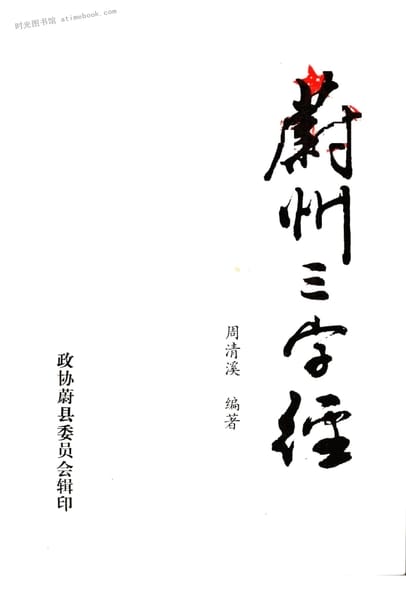 时光图书馆 atimebook.com
蔚州三字经
周清溪 编著
政协蔚县委员会辑印